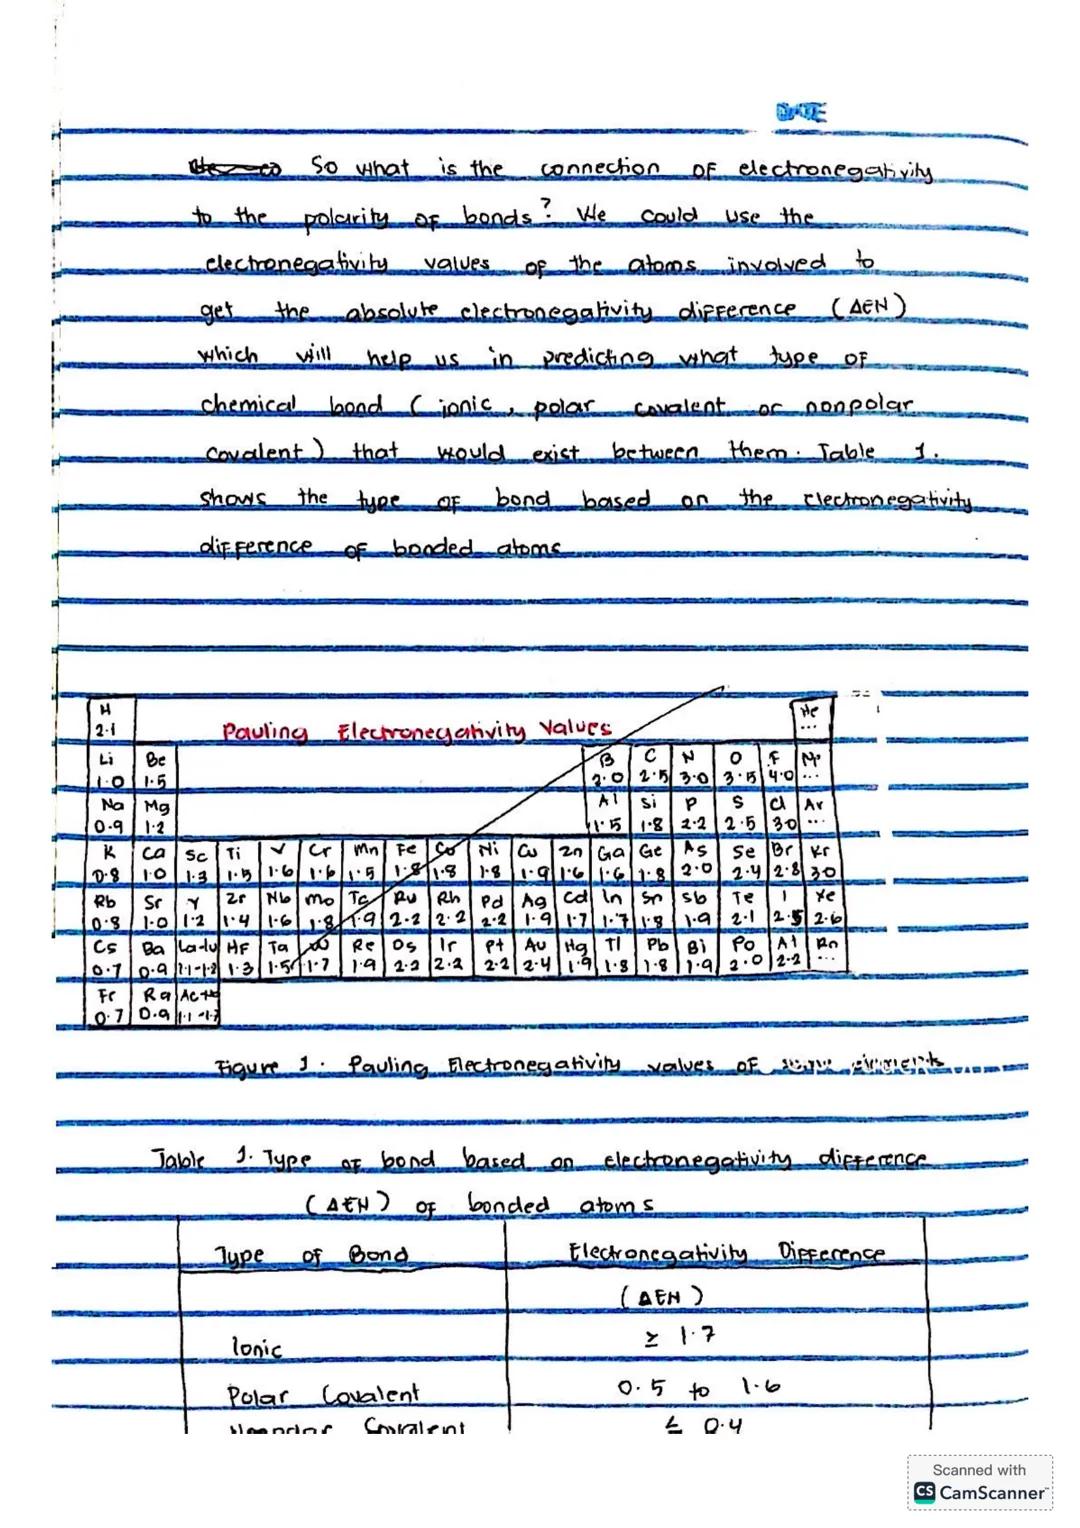 DATE
So what is the connection of electronegativity
to the polarity of bonds? We could use the
electronegativity values of the atoms involved to
get the absolute electronegativity difference (ΔEN)
which will help us in predicting what type of
chemical bond (ionic, polar covalent or nonpolar
covalent) that would exist between them. Table 1.
shows the type of bond based on the electronegativity
difference of bonded atoms
H He
2.1 Pauling Electronegativity Values ...
Li Be B C N O F
1.0 1.5 2.0 2.5 3.0 3.5 4.0 ...
Na Mg Al Si P S Cl Ar
0.9 1.2 1.5 1.8 2.2 2.5 3.0 ...
K Ca Sc Ti V Cr Mn Fe Co Ni Cu Zn Ga Ge As Se Br Kr
0.8 1.0 1.3 1.5 1.6 1.6 1.5 1.8 1.8 1.8 1.9 1.6 1.6 1.8 2.0 2.4 2.8 3.0
Rb Sr Y Zr Nb Mo Tc Ru Rh Pd Ag Cd In Sn Sb Te I Xe
0.8 1.0 1.2 1.4 1.6 1.8 1.9 2.2 2.2 2.2 1.9 1.7 1.7 1.8 1.9 2.1 2.5 2.6
Cs Ba La-Lu HF Ta W Re Os Ir Pt Au Hg Tl Pb Bi Po At Rn
0.7 0.9 1.1-1.2 1.3 1.5 1.7 1.9 2.2 2.2 2.2 2.4 1.9 1.8 1.8 1.9 2.0 2.2 ...
Fr Ra
0.7 0.9 1.1-1.7
Figure 1. Pauling Electronegativity values of
Table 1. Type of bond based on electronegativity difference
(ΔEN) of bonded atoms
Type of Bond Electronegativity Difference
(ΔEN)
Ionic ≥ 1.7
Polar Covalent 0.5 to 1.6
Nonpolar Covalent ≤ 0.4
Scanned with
CS CamScanner